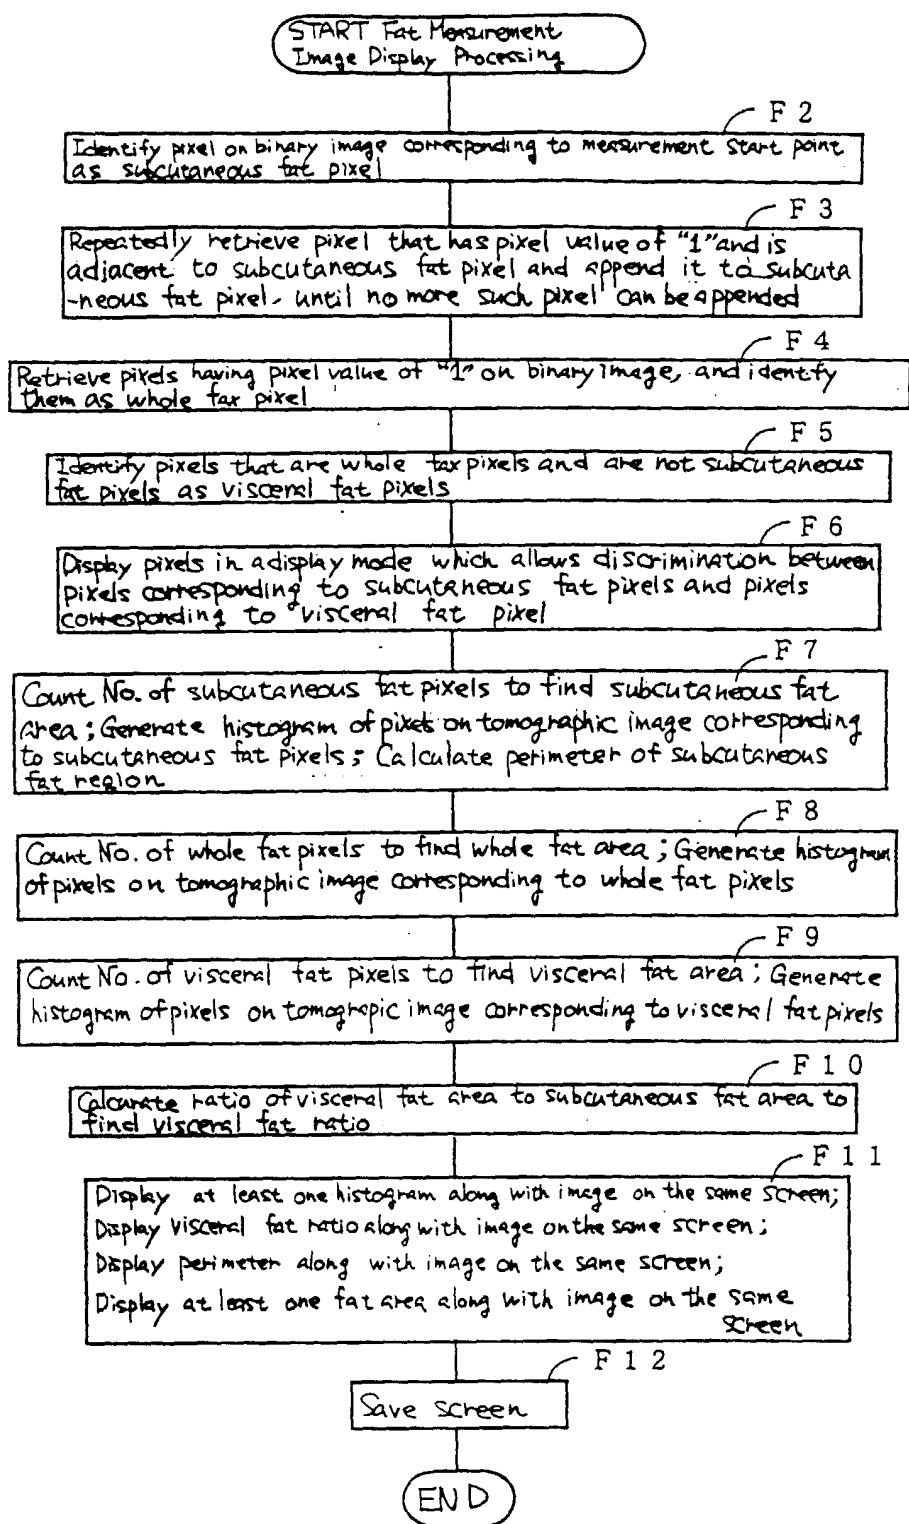 START Fat Measurement
Image Display Processing
F 2
Identify pixel on binary image corresponding to measurement start point
as subcutaneous fat pixel
F 3
Repeatedly retrieve pixel that has pixel value of "1" and is
adjacent to subcutaneous fat pixel and append it to subcuta
-neous fat pixel, until no more such pixel can be appended
F 4
Retrieve pixels having pixel value of "1" on binary image, and identify
them as whole tax pixel
F 5
Identify pixels that are whole tax pixels and are not subcutaneous
fat pixels as visceral fat pixels
F 6
Display pixels in a display mode which allows discrimination between
pixels corresponding to subcutaneous fat pixels and pixels
corresponding to visceral fat pixel
F 7
Count No. of subcutaneous fat pixels to find subcutaneous fat
area; Generate histogram of pixels on tomographic image corresponding
to subcutaneous fat pixels; Calculate perimeter of subcutaneous
fat region
F 8
Count No. of whole fat pixels to find whole fat area; Generate histogram
of pixels on tomographic image corresponding to whole fat pixels
F 9
Count No. of visceral fat pixels to find visceral fat area; Generate
histogram of pixels on tomograpic image corresponding to visceral fat pixels
F 10
Calcurate ratio of visceral fat area to subcutaneous fat area to
find visceral fat ratio
F 11
Display at least one histogram along with image on the same screen;
Display visceral fat ratio along with image on the same screen;
Display perimeter along with image on the same screen;
Display at least one fat area along with image on the same
screen
F 12
Save screen
END